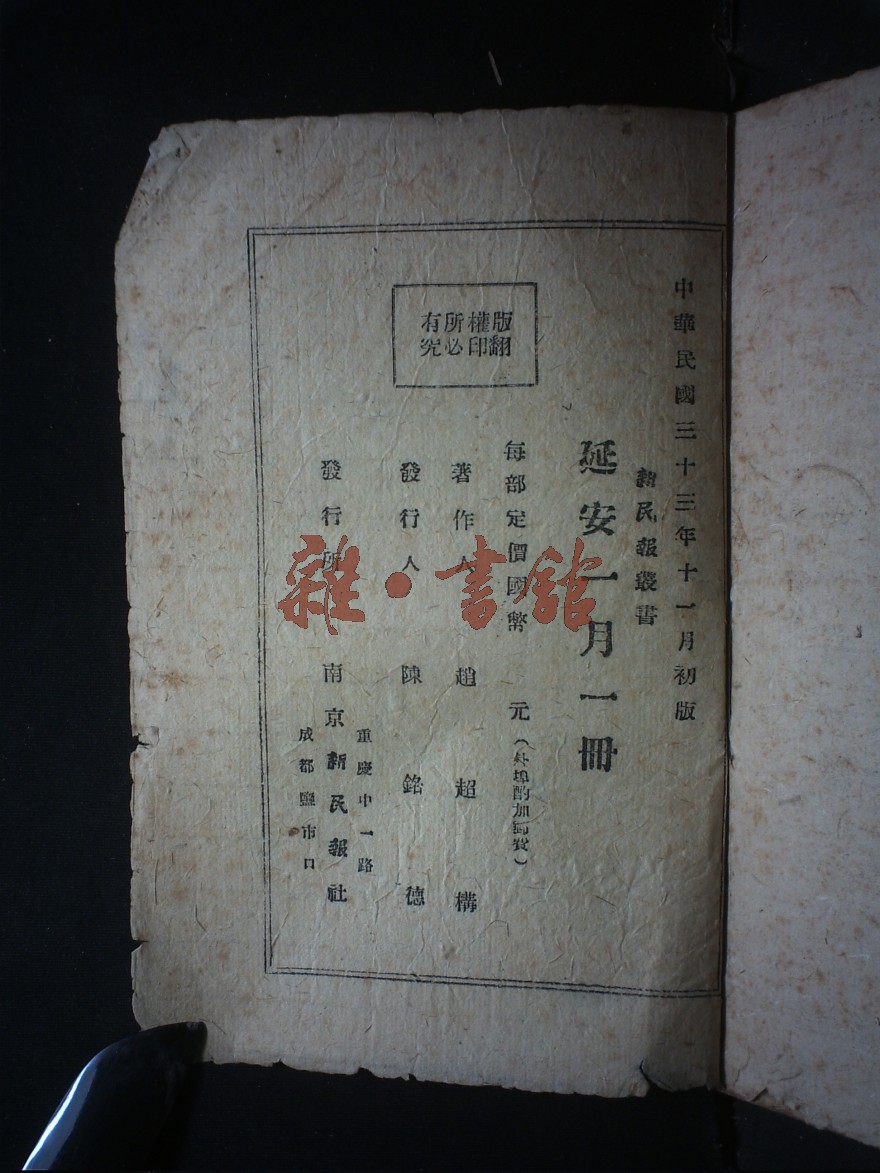 中華民國三十三年十一月初版
新民報叢書
延安一月一冊
每部定價國幣 元(外埠酌加郵費)
著作人 趙超構
發行人 陳銘德
發行所 南京新民報社
重慶中一路
成都鹽市口
版權所有
翻印必究
雜·書館